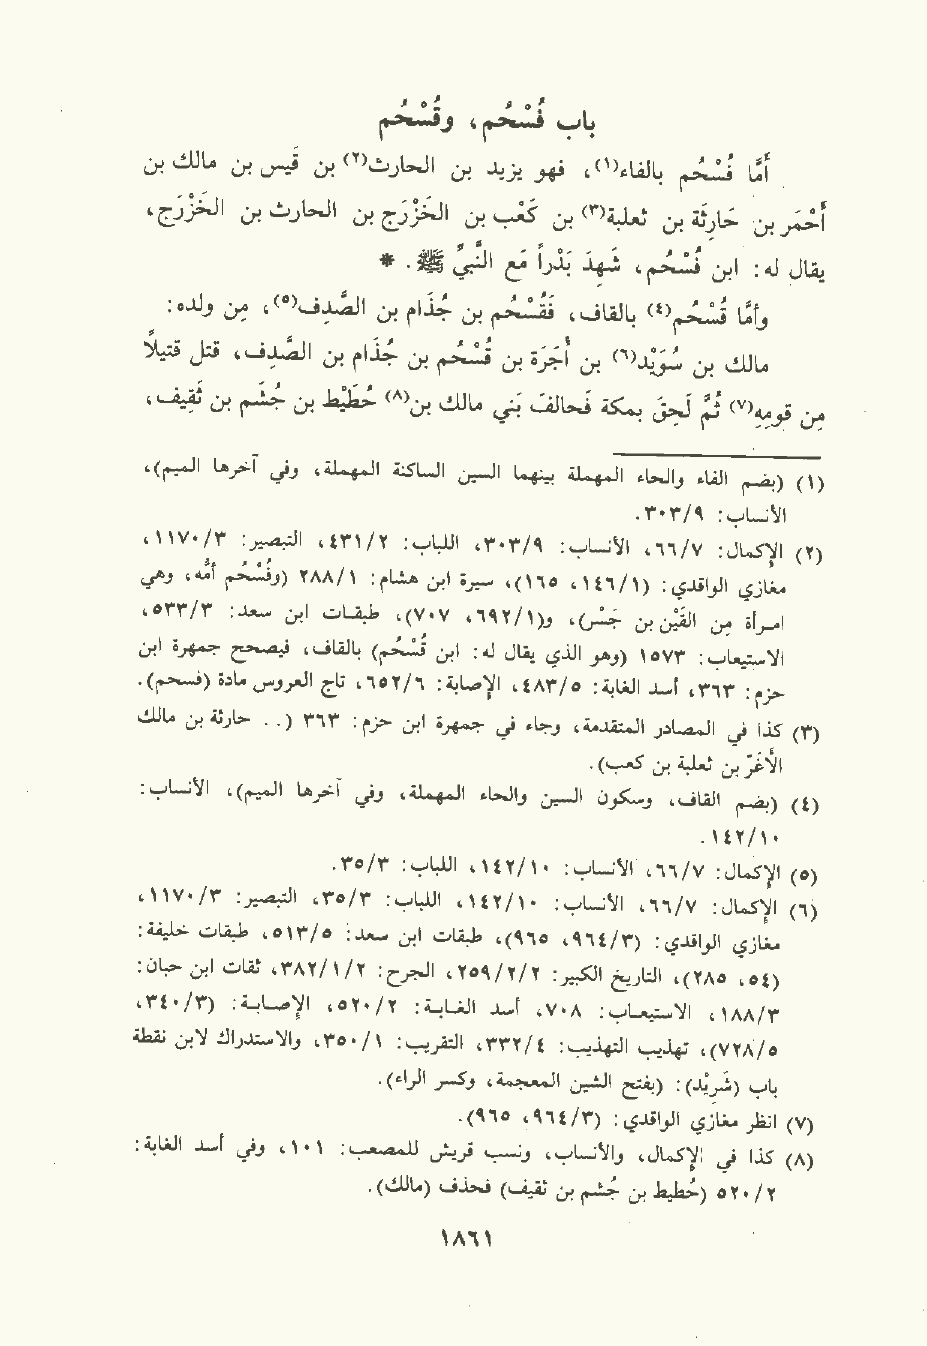 باب فُسْحُم، وقُسْحُم
أمَّا فُسْحُم بالفاء(١)، فهو يزيد بن الحارث(٢) بن قَيس بن مالك بن
أَحْمَر بن حَارِثَة بن ثعلبة(٣) بن كَعْب بن الخَزْرَج بن الحارث بن الخَزْرَج،
يقال له: ابن فُسْحُم، شَهِدَ بَدْراً مَع النَّبيِّ ﷺ. *
وأمَّا قُسْحُم(٤) بالقاف، فَقُسْحُم بن جُذَام بن الصَّدِف(٥)، مِن ولده:
مالك بن سُوَيْد(٦) بن أَجَرَة بن قُسْحُم بن جُذَام بن الصَّدِف، قتل قتيلاً
مِن قومِهِ(٧) ثُمَّ لَحِقَ بمكة فَحالفَ بَني مالك بن(٨) حُطَيْط بن جُشَم بن ثَقِيف،
(١) (بضم الفاء والحاء المهملة بينهما السين الساكنة المهملة، وفي آخرها الميم)،
الأنساب: ٣٠٣/٩.
(٢) الإكمال: ٦٦/٧، الأنساب: ٣٠٣/٩، اللباب: ٤٣١/٢، التبصير: ١١٧٠/٣،
مغازي الواقدي: (١٤٦/١، ١٦٥)، سيرة ابن هشام: ٢٨٨/١ (وفُسْحُم أمُّه، وهي
امرأة مِن القَيْن بن جَسْر)، و(٦٩٢/١، ٧٠٧)، طبقات ابن سعد: ٥٣٣/٣،
الاستيعاب: ١٥٧٣ (وهو الذي يقال له: ابن قُسْحُم) بالقاف، فيصحح جمهرة ابن
حزم: ٣٦٣، أسد الغابة: ٤٨٣/٥، الإصابة: ٦٥٢/٦، تاج العروس مادة (فسحم).
(٣) كذا في المصادر المتقدمة، وجاء في جمهرة ابن حزم: ٣٦٣ (.. حارثة بن مالك
الأَغرّ بن ثعلبة بن كعب).
(٤) (بضم القاف، وسكون السين والحاء المهملة، وفي آخرها الميم)، الأنساب:
١٤٢/١٠.
(٥) الإكمال: ٦٦/٧، الأنساب: ١٤٢/١٠، اللباب: ٣٥/٣.
(٦) الإكمال: ٦٦/٧، الأنساب: ١٤٢/١٠، اللباب: ٣٥/٣، التبصير: ١١٧٠/٣،
مغازي الواقدي: (٩٦٤/٣، ٩٦٥)، طبقات ابن سعد: ٥١٣/٥، طبقات خليفة:
(٥٤، ٢٨٥)، التاريخ الكبير: ٢٥٩/٢/٢، الجرح: ٣٨٢/١/٢، ثقات ابن حبان:
١٨٨/٣، الاستيعاب: ٧٠٨، أسد الغابة: ٥٢٠/٢، الإصابة: (٣٤٠/٣،
٧٢٨/٥)، تهذيب التهذيب: ٣٣٢/٤، التقريب: ٣٥٠/١، والاستدراك لابن نقطة
باب (شَرِيْد): (بفتح الشين المعجمة، وكسر الراء).
(٧) انظر مغازي الواقدي: (٩٦٤/٣، ٩٦٥).
(٨) كذا في الإكمال، والأنساب، ونسب قريش للمصعب: ١٠١، وفي أسد الغابة:
٥٢٠/٢ (حُطيط بن جُشم بن ثقيف) فحذف (مالك).
١٨٦١